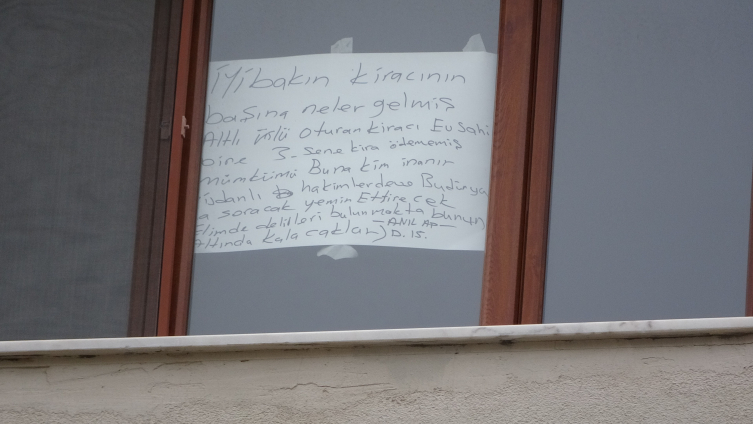 İyi bakın kiracının
başına neler gelmiş
Altlı üstlü oturan kiracı Ev sahi
bine 3-sene kira ödememiş
mümkümü Buna kim inanır
hakimlerdeve Budünya
a soracak yemin Ettirecek
Elimde delilleri bulunmakta bunun
Altında kalacaklar) -ANIL AP-
D. 15.